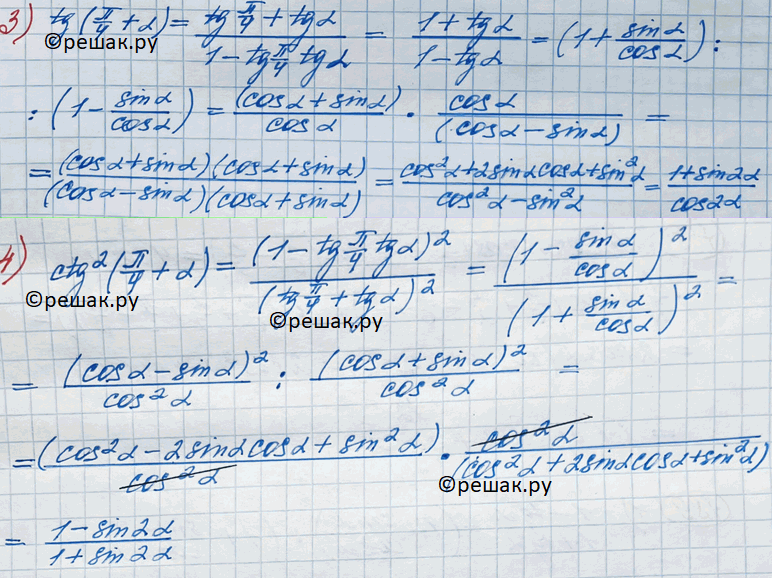 3) tg(π/4 + α) = (tg π/4 + tgα)/(1 - tg π/4 tgα) = (1 + tgα)/(1 - tgα) = (1 + sinα/cosα) :
©решак.ру
: (1 - sinα/cosα) = (cosα + sinα)/cosα · cosα/(cosα - sinα) =
= (cosα + sinα)(cosα + sinα)/(cosα - sinα)(cosα + sinα) = (cos²α + 2sinαcosα + sin²α)/(cos²α - sin²α) = (1 + sin2α)/cos2α
4) ctg²(π/4 + α) = (1 - tg π/4 tgα)²/(tg π/4 + tgα)² = (1 - sinα/cosα)²/(1 + sinα/cosα)² =
©решак.ру
©решак.ру
= (cosα - sinα)²/cos²α : (cosα + sinα)²/cos²α =
= (cos²α - 2sinαcosα + sin²α)/cos²α · cos²α/(cos²α + 2sinαcosα + sin²α)
©решак.ру
= (1 - sin2α)/(1 + sin2α)